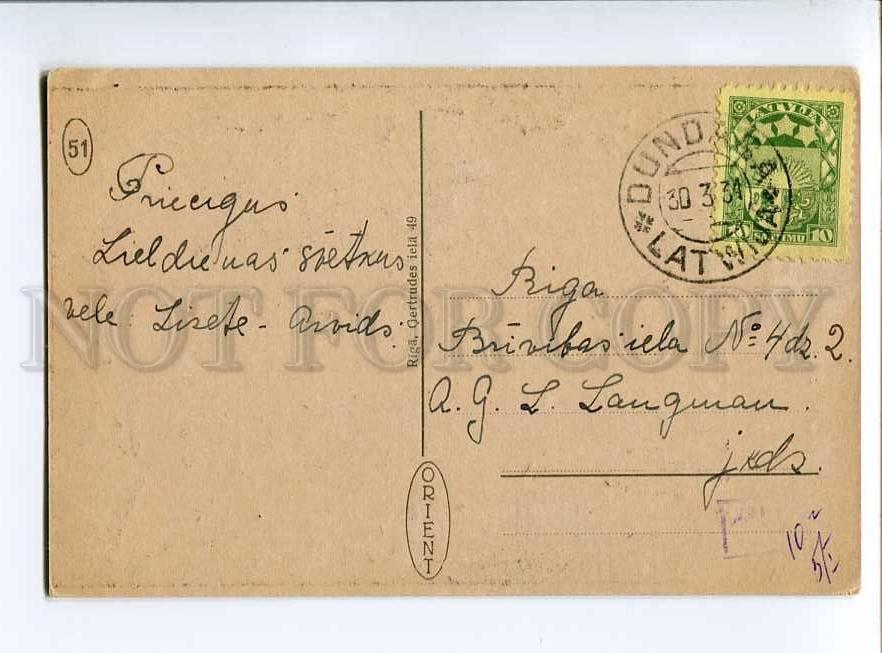 51
Priecigus
Lieldienas svētkus
vēle Lizete - Arvids.
Rīgā, Ģertrudes ielā 49
ORIENT
DUNDAGA
30 3 31
LATWIJA
LATVIJA
10 10
Riga
Brīvības iela No 4 dz. 2.
A. G. L. Langman.
jkds.
10
NOT FOR COPY